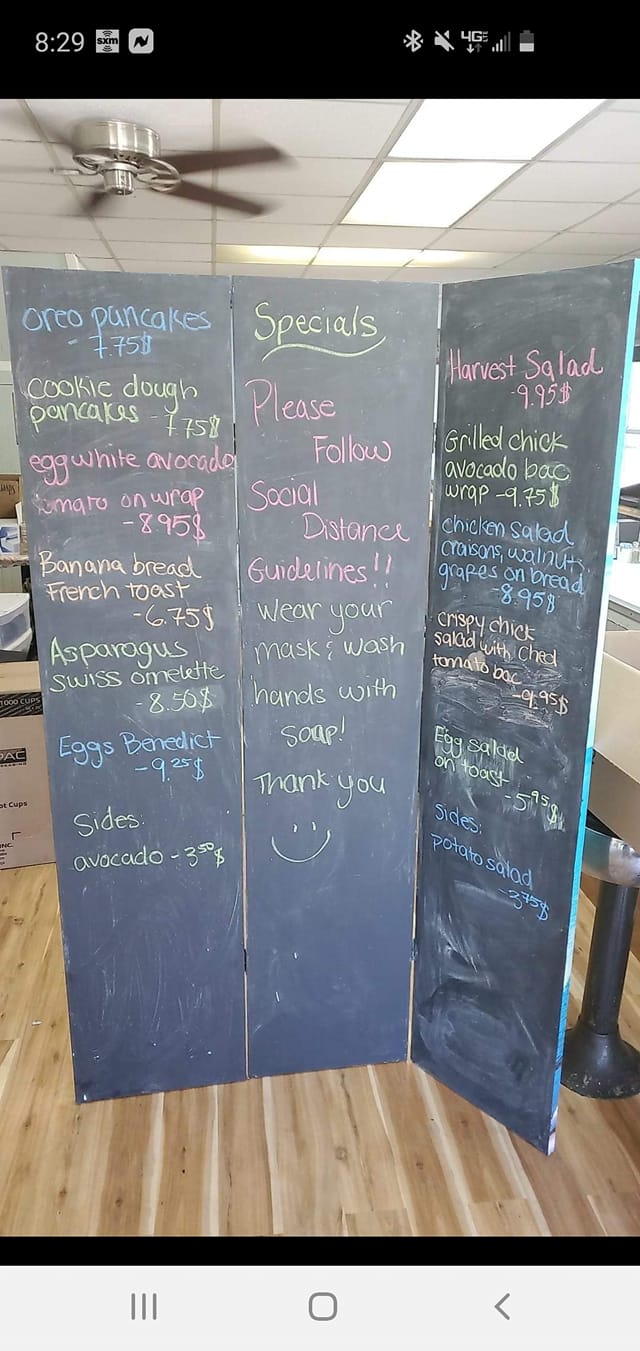 8:29
sxm
4G
oreo pancakes
- 7.75$
cookie dough
pancakes - 7.75$
egg white avocado
tomato on wrap
- 8.95$
Banana bread
French toast
- 6.75$
Asparagus
swiss omelette
- 8.50$
Eggs Benedict
- 9.25$
Sides:
avocado - 3.50$
Specials
Please
Follow
Social
Distance
Guidelines!!
wear your
mask & wash
hands with
soap!
Thank you
Harvest Salad
- 9.95$
Grilled chick
avocado bac
wrap - 9.75$
chicken salad
craisons, walnuts,
grapes on bread
- 8.95$
crispy chick
salad with ched
tomato bac
- 9.95$
Egg salad
on toast - 5.95$
Sides:
potato salad
- 3.75$
1000 CUPS
PAC
ot Cups
INC.